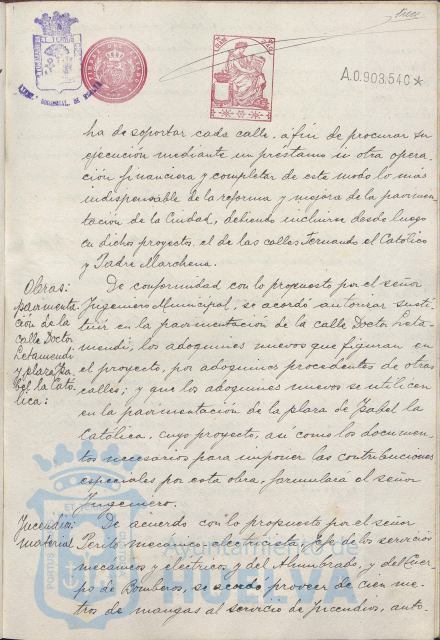 A.0.903.540 *
ha de soportar cada calle, á fin de procurar su
ejecución mediante un préstamo ú otra opera-
ción financiera y completar de este modo lo más
indispensable de la reforma y mejora de la pavimen-
tación de la Ciudad, debiendo incluirse desde luego
en dichos proyectos, el de las calles Fernando el Católico
y Padre Marchena.
Obras:
pavimenta
ción de la
calle Doctor
Letamendi
y plaza Isa-
bel la Cató-
lica:
De conformidad con lo propuesto por el señor
Ingeniero Municipal, se acordó autorizar susti-
tuir en la pavimentación de la calle Doctor Leta-
mendi, los adoquines nuevos que figuran en
el proyecto, por adoquines procedentes de otras
calles; y que los adoquines nuevos se utilicen
en la pavimentación de la plaza de Isabel la
Católica, cuyo proyecto, así como los documen-
tos necesarios para imponer las contribuciones
especiales por esta obra, formulará el señor
Ingeniero.
Incendios:
material
De acuerdo con lo propuesto por el señor
Perito mecánico electricista, Jefe de los servicios
mecánicos y eléctricos y del Alumbrado, y del Cuer-
po de Bomberos, se acordó proveer de cien me-
tros de mangas al servicio de Incendios, auto-
Ayuntamiento de
HUELVA